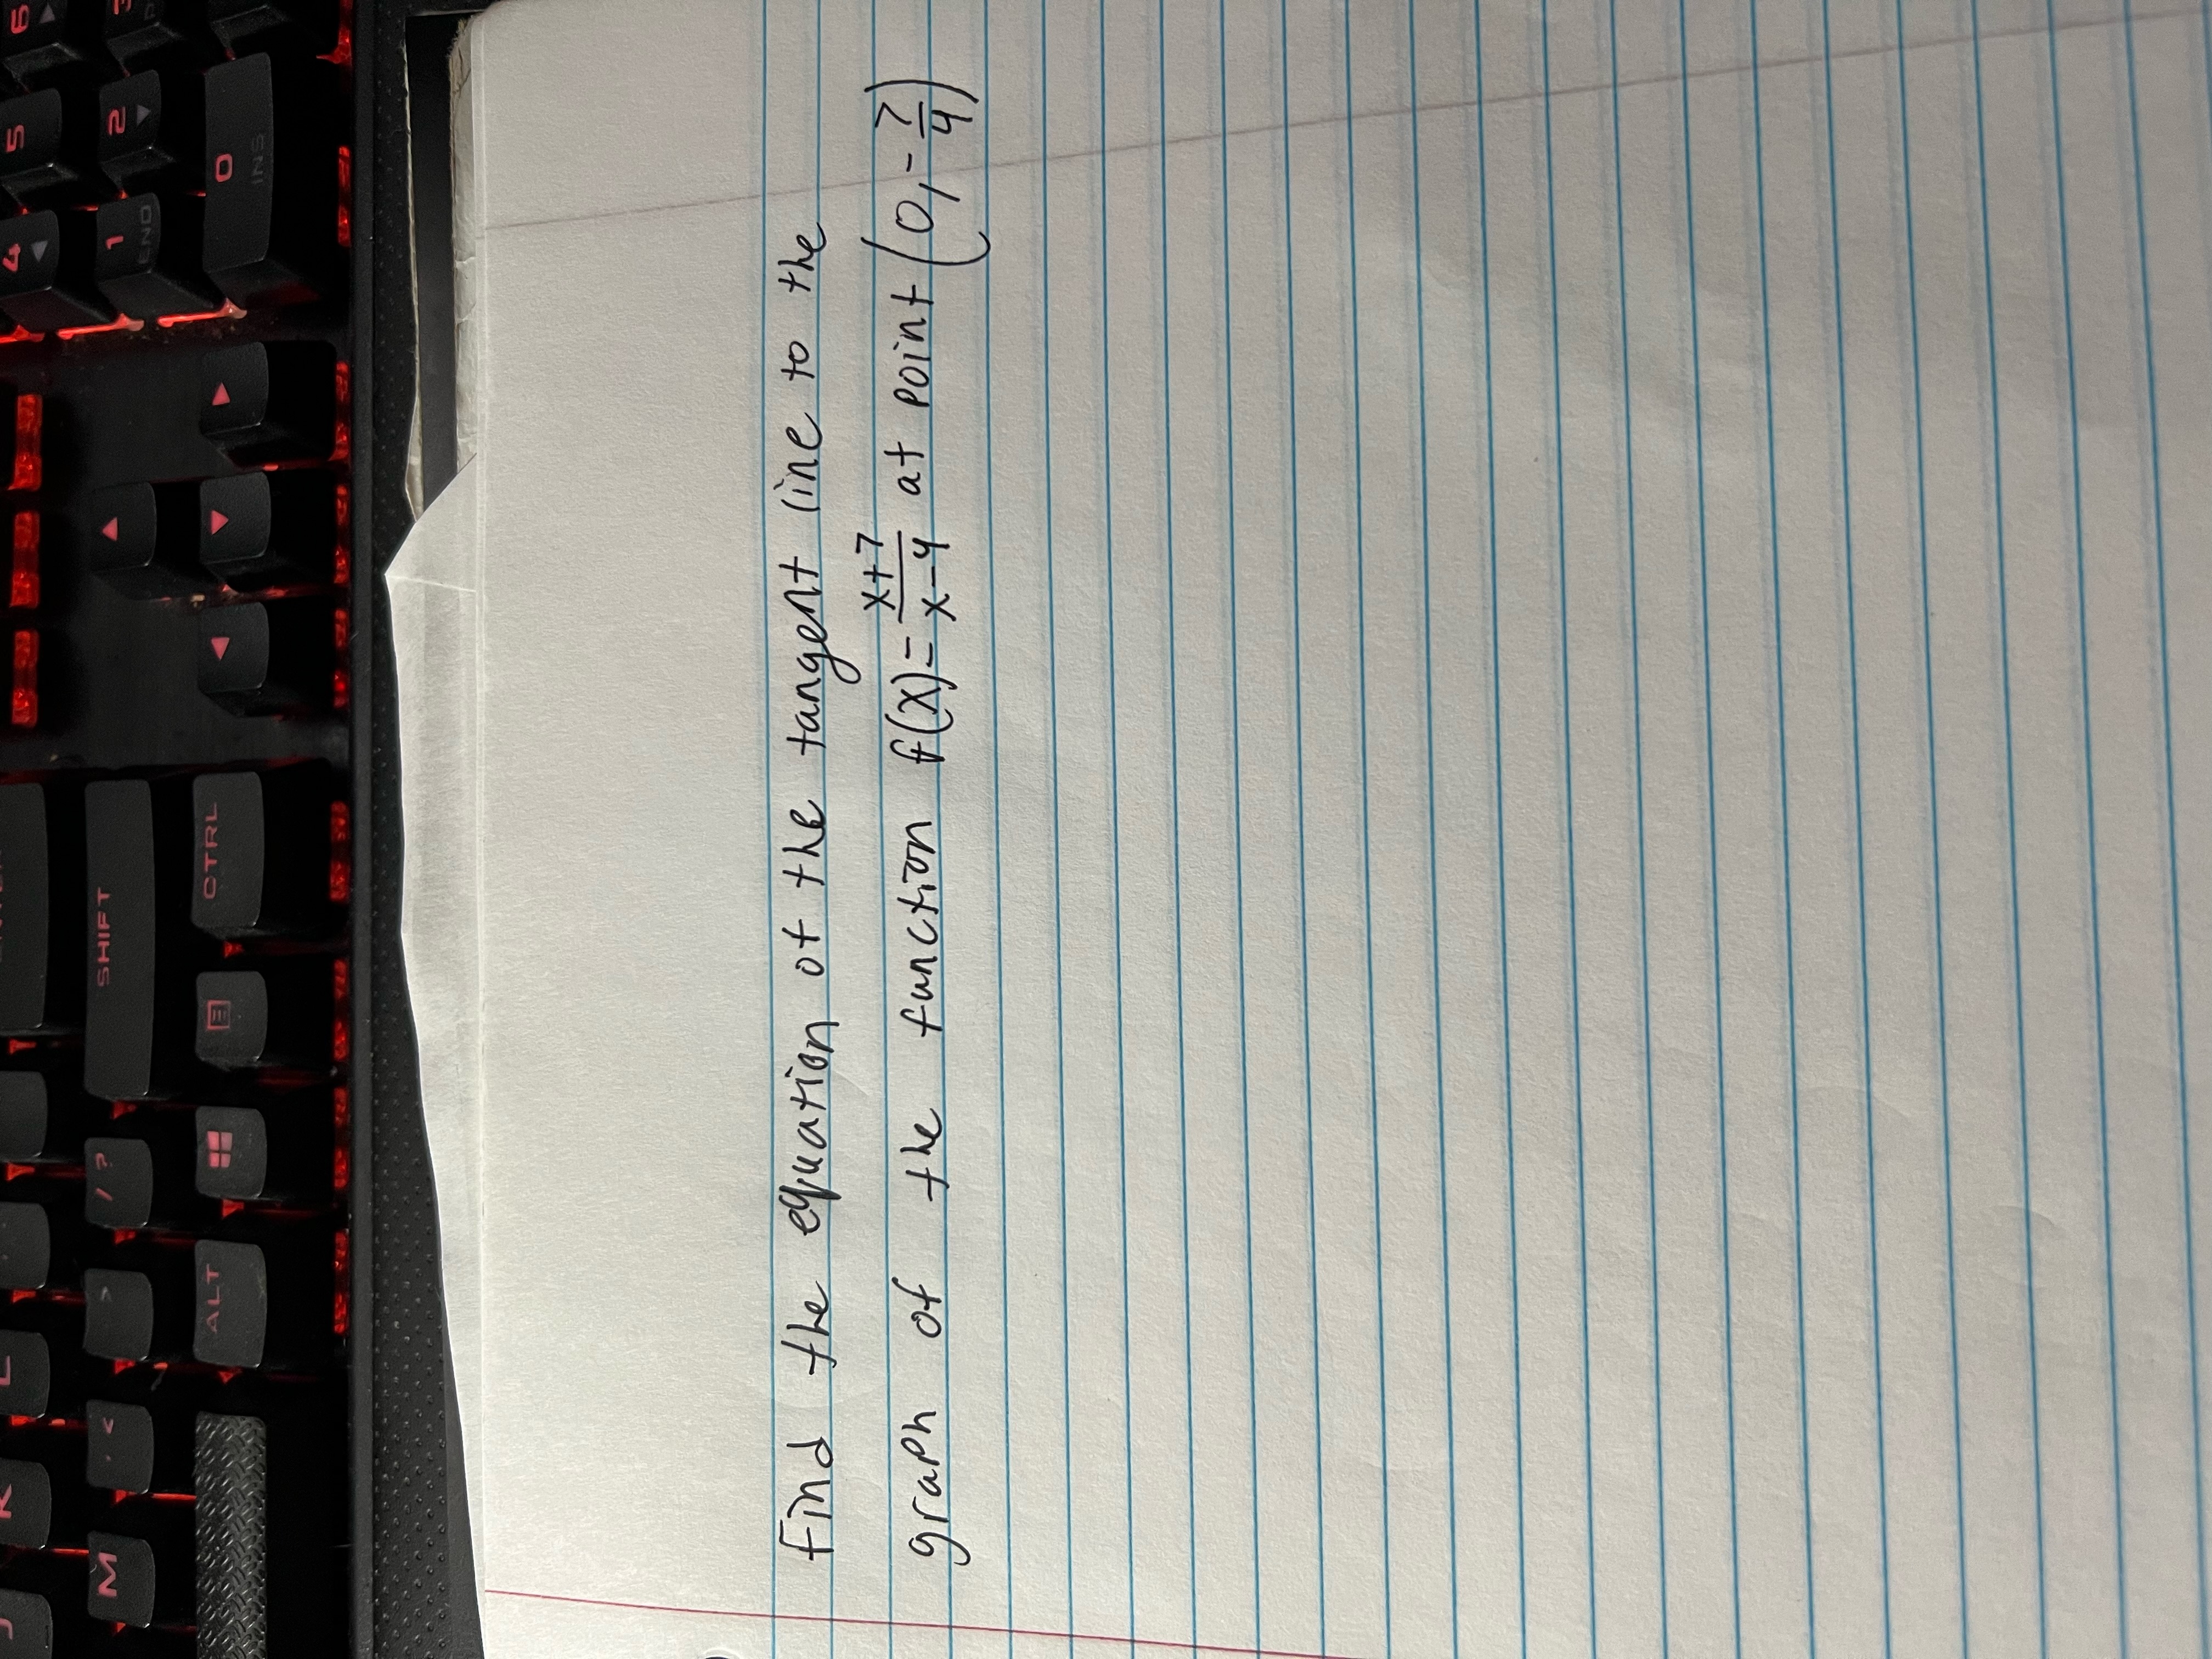 Find the equation of the tangent line to the
graph of the function f(x) = \frac{x+7}{x-4} at point (0, -\frac{7}{4})
6
3
5
2
0
INS
4
1
END
SHIFT
CTRL
/ ?
. >
ALT
L
, <
K
M
J